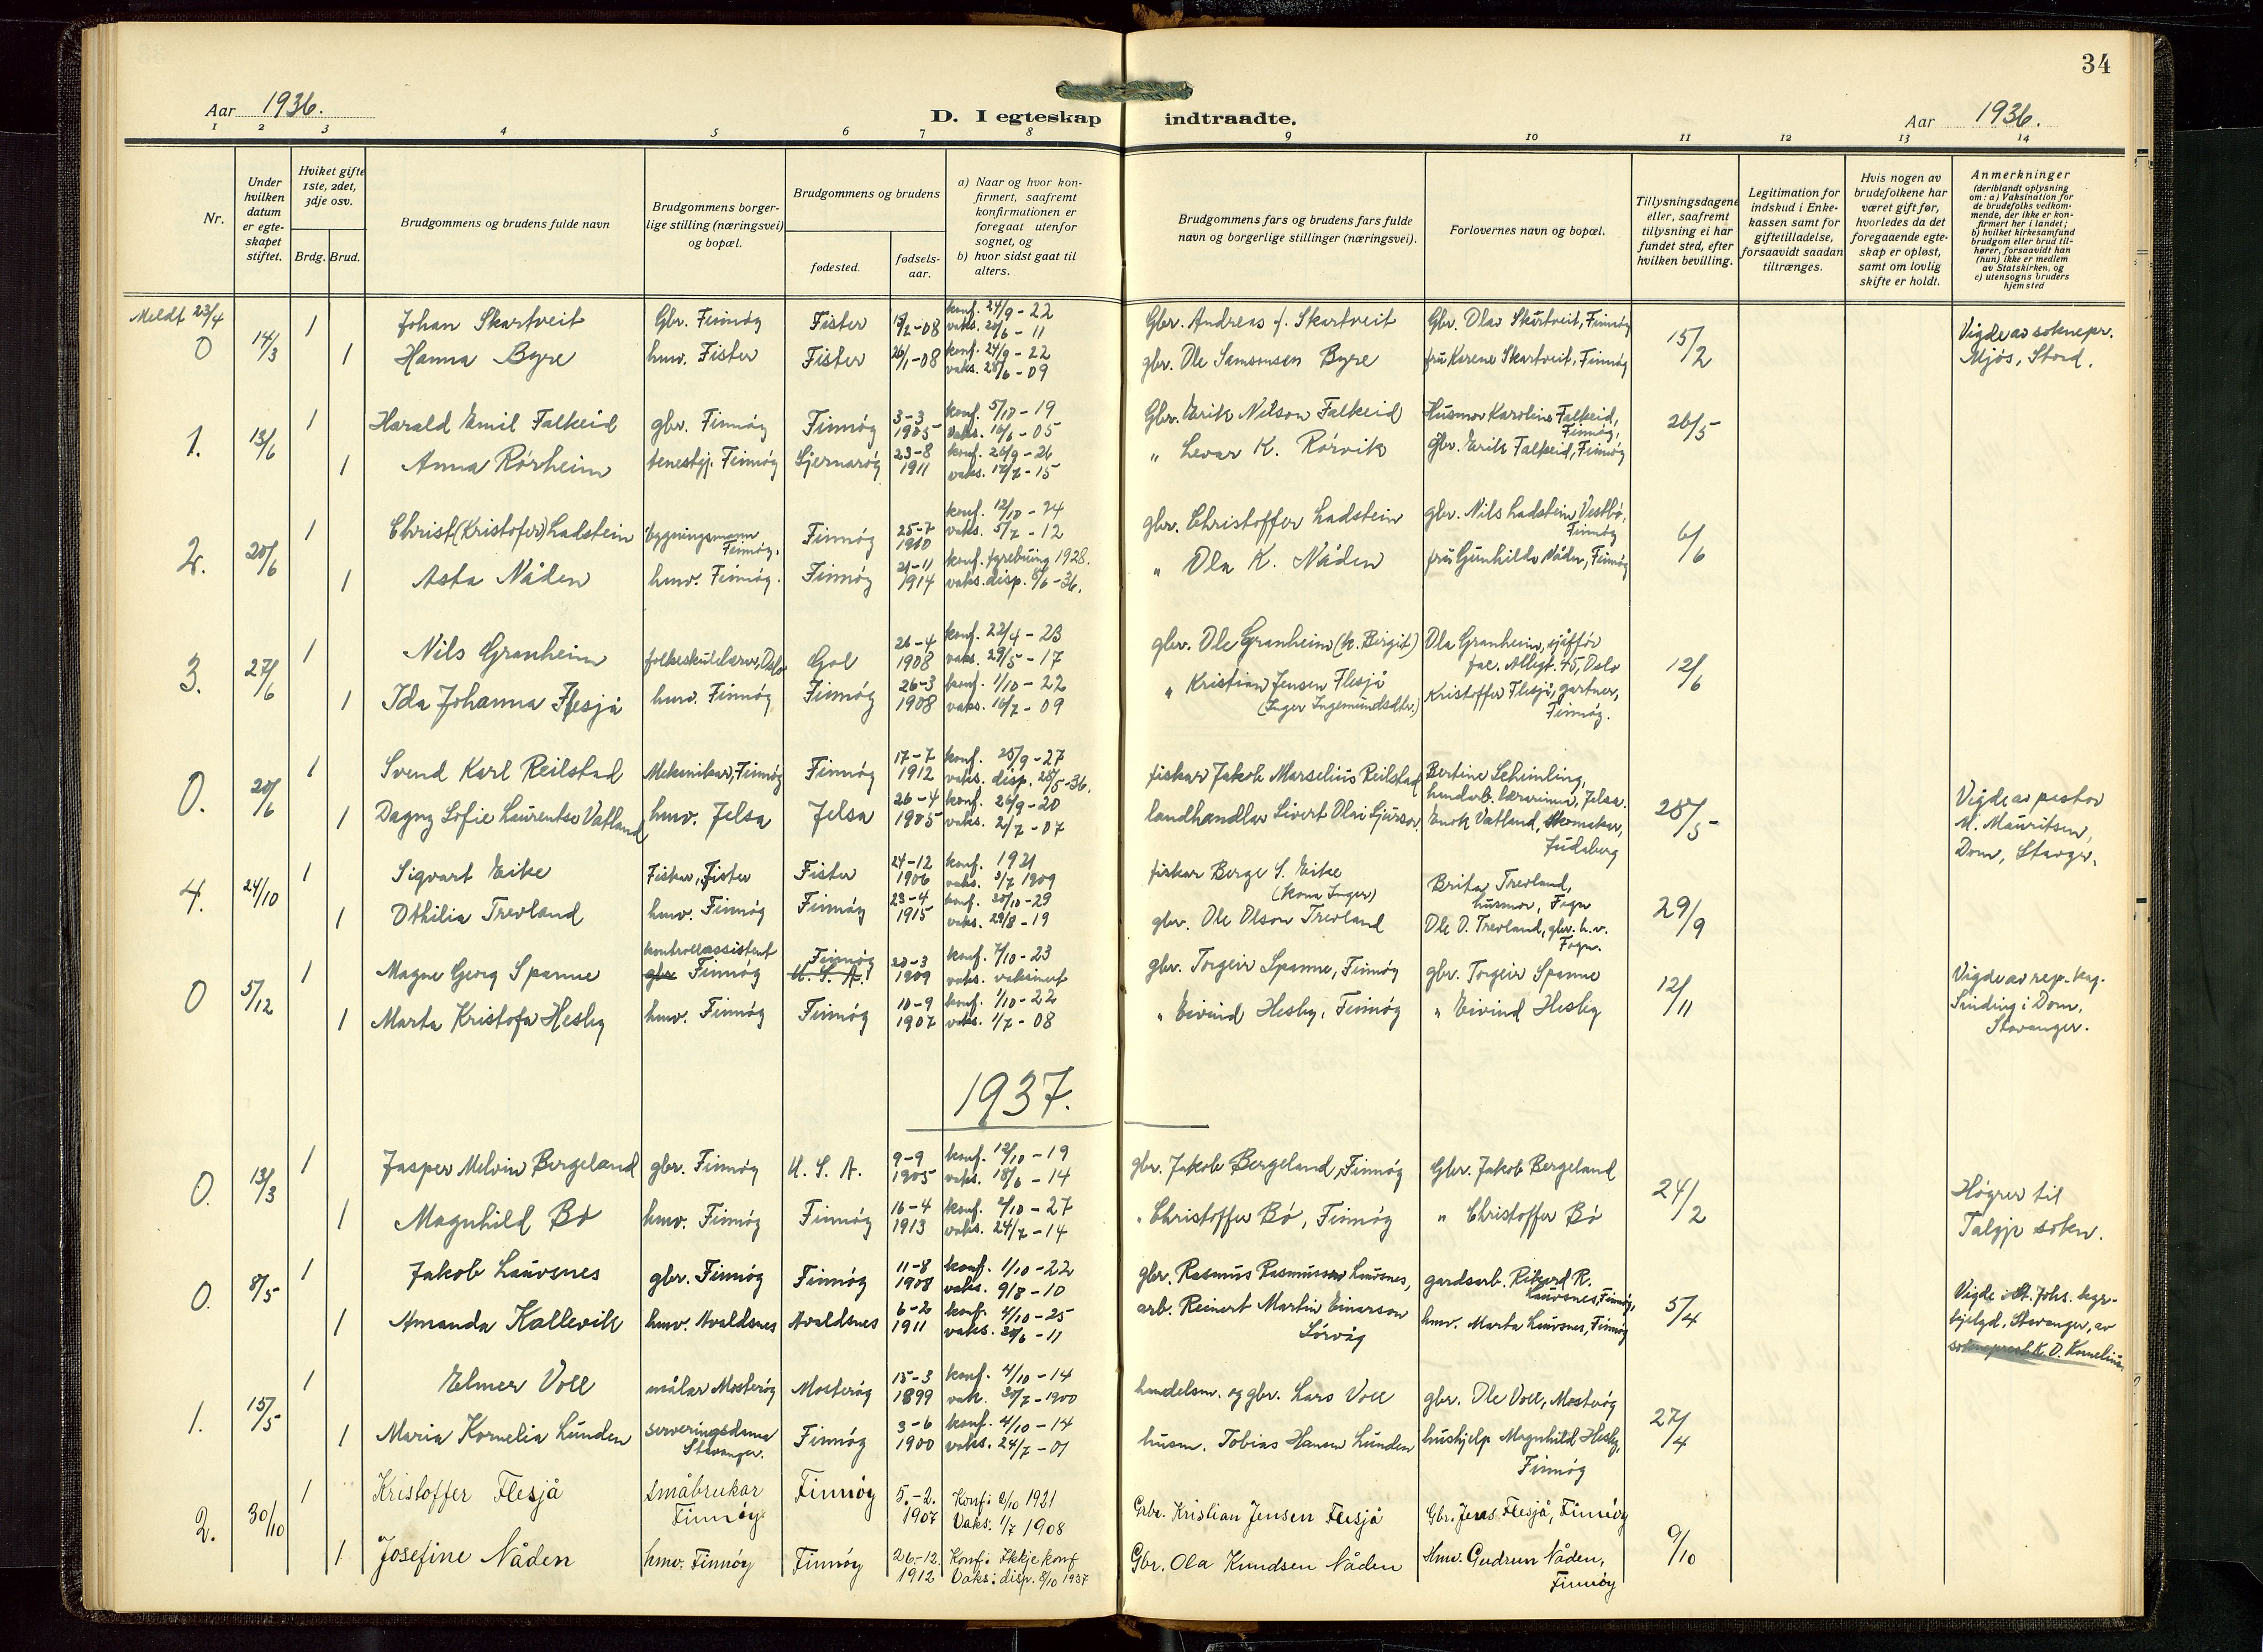 34
Aar 1936.
D. I egteskap indtraadte.
Aar 1936.
1 2 3 4 5 6 7 8 9 10 11 12 13 14
Nr.
Under hvilken datum er egte-skapet stiftet.
Hviket gifte 1ste, 2det, 3dje osv.
Brdg. Brud.
Brudgommens og brudens fulde navn
Brudgommens borger-lige stilling (næringsvei) og bopæl.
Brudgommens og brudens
fødested.
fødsels-aar.
a) Naar og hvor kon-firmert, saafremt konfirmationen er foregaat utenfor sognet, og
b) hvor sidst gaat til alters.
Brudgommens fars og brudens fars fulde navn og borgerlige stillinger (næringsvei).
Forlovernes navn og bopæl.
Tillysningsdagene eller, saafremt tillysning ei har fundet sted, efter hvilken bevilling.
Legitimation for indskud i Enke-kassen samt for giftetilladelse, forsaavidt saadan tiltrænges.
Hvis nogen av brudefolkene har været gift før, hvorledes da det foregaaende egte-skap er opløst, samt om lovlig skifte er holdt.
Anmerkninger
(deriblandt oplysning om: a) Vaksination for de brudefolks vedkom-mende, der ikke er kon-firmert her i landet; b) hvilket kirkesamfund brudgom eller brud til-hører, forsaavidt han (hun) ikke er medlem av Statskirken, og c) utensogns bruders hjemsted
Meldt 23/4
0 14/3 1 Johan Skartveit Gbr. Finnøy Fister 12/2-08 konf. 24/9-22 vaks. 20/6-11 Gbr. Andreas J. Skartveit Gbr. Olav Skartveit, Finnøy 15/2 Vigde av soknepr.
1 Hanna Byre hmv. Fister Fister 26/1-08 konf. 24/9-22 vaks. 28/6-09 gbr. Ole Samsonsen Byre fru Karene Skartveit, Finnøy Mjøs, Stord.
1. 13/6 1 Harald Emil Falkeid gbr. Finnøy Finnøy 3-3 1905 konf. 5/10-19 vaks. 16/6-05 Gbr. Erik Nilson Falkeid Husmor Karoline Falkeid, Finnøy, 26/5
1 Anna Rørheim tenestgj. Finnøy Sjernarøy 23-8 1911 konf. 26/9-26 vaks. 12/7-15 " Levar K. Rørvik Gbr. Erik Falkeid, Finnøy
2. 20/6 1 Christ (Kristofer) Ladstein bygningsmann Finnøy. Finnøy 25-7 1910 konf. 12/10-24 vaks. 5/7-12 gbr. Christoffer Ladstein gbr. Nils Ladstein, Vestbø, Finnøy 6/6
1 Asta Nåden hmv. Finnøy. Finnøy 21-11 1914 konf. fyrebuing 1928. vaks. disp. 8/6-36. " Ola K. Nåden fru Gunhilda Nåden, Finnøy
3. 27/6 1 Nils Granheim folkeskulelærar, Oslo Gol 26-4 1908 konf. 22/4-23 vaks. 29/5-17 gbr. Ole Granheim (k. Birgit) Ola Granheim, sjåffør Jac. Allsgt. 45, Oslo 12/6
1 Ida Johanna Flesjå hmv. Finnøy Finnøy 26-3 1908 konf. 1/10-22 vaks. 16/7-09 " Kristian Jensen Flesjå (Inger Ingemundsdtr.) Kristoffer Flesjå, gartner, Finnøy.
0. 20/6 1 Svend Karl Reilstad Mekanikar, Finnøy Finnøy 17-7 1912 konf. 25/9-27 vaks. disp. 28/5-36. fiskar Jakob Marselius Reilstad Bertine Scheimling, handarb. lærarinna, Jelsa. 28/5 Vigde av pastor
1 Dagny Sofie Laurentse Vatland hmv. Jelsa Jelsa 26-4 1905 konf. 26/9-20 vaks. 2/7-07 landhandlar Sivert Olai Gjursør Enok Vatland, skomakar, Judaberg M. Mauritsen, Dom, Stavgr.
4. 24/10 1 Sigvart Eike Fiskar, Fister Fister 24-12 1906 konf. 1921 vaks. 3/7 1909 fiskar Berge S. Eike (kona Inger) Brita Trevland, husmor, Fogn 29/9
1 Othilia Trevland hmv. Finnøy Finnøy 23-4 1915 konf. 30/10-29 vaks. 29/8-19 gbr. Ole Olson Trevland Ole O. Trevland, gbr. h.v. Fogn.
0 5/12 1 Magne Georg Spanne kontrollassistent gbr Finnøy Finnøy U. S. A.! 20-3 1909 konf. 7/10-23 vaks. vaksinert gbr. Torgeir Spanne, Finnøy gbr. Torgeir Spanne 12/11 Vigde av rep. kap.
1 Marta Kristofa Hesby hmv. Finnøy Finnøy 10-9 1907 konf. 1/10-22 vaks. 1/7-08 " Eivind Hesby, Finnøy " Eivind Hesby Sinding i Dom. Stavanger.
1937.
0. 13/3 1 Jasper Melvin Bergeland gbr. Finnøy U. S. A. 9-9 1905 konf. 12/10-19 vaks. 18/6-14 gbr. Jakob Bergeland, Finnøy Gbr. Jakob Bergeland 24/2 Høyrer til
1 Magnhild Bø hmv. Finnøy Finnøy 16-4 1913 konf. 2/10-27 vaks. 24/7-14 " Christoffer Bø, Finnøy " Christoffer Bø Talgje sokn.
0. 8/5 1 Jakob Lauvsnes gbr. Finnøy Finnøy 11-8 1908 konf. 1/10-22 vaks. 9/8-10 gbr. Rasmus Rasmusson Lauvsnes, gardsarb. Rikard R. Lauvsnes, Finnøy, 5/4 Vigde i St. Johs. kyr-
1 Amanda Kallevik hmv. Avaldsnes Avaldsnes 6-2 1911 konf. 4/10-25 vaks. 30/6-11 arb. Reinert Martin Einarson Sørvåg hmv. Marta Lauvsnes, Finnøy kjelyd, Stavanger, av sokneprest K. O. Kornelius.
1. 15/5 1 Elmer Voll målar Mosterøy Mosterøy 15-3 1899 konf. 4/10-14 vak. 30/7-1900 handelsm. og gbr. Lars Voll gbr. Ole Voll, Mosterøy 27/4
1 Maria Kornelia Lunden serveringsdama Stavanger. Finnøy 3-6 1900 konf. 4/10-14 vaks. 24/7-01 husm. Tobias Hansen Lunden hushjelp Magnhild Hesby, Finnøy
2. 30/10 1 Kristoffer Flesjå småbrukar Finnøy Finnøy 5.-2. 1907 Konf: 2/10 1921 Vaks: 1/7 1908 Grbr. Kristian Jensen Flesjå Gbr. Jens Flesjå, Finnøy 9/10
1 Josefine Nåden hmv. Finnøy Finnøy 26-12. 1912 Konf: Ikkje konf Vaks: disp. 8/10 1937 Gbr. Ola Knudsen Nåden Hmv. Gudrun Nåden, Finnøy